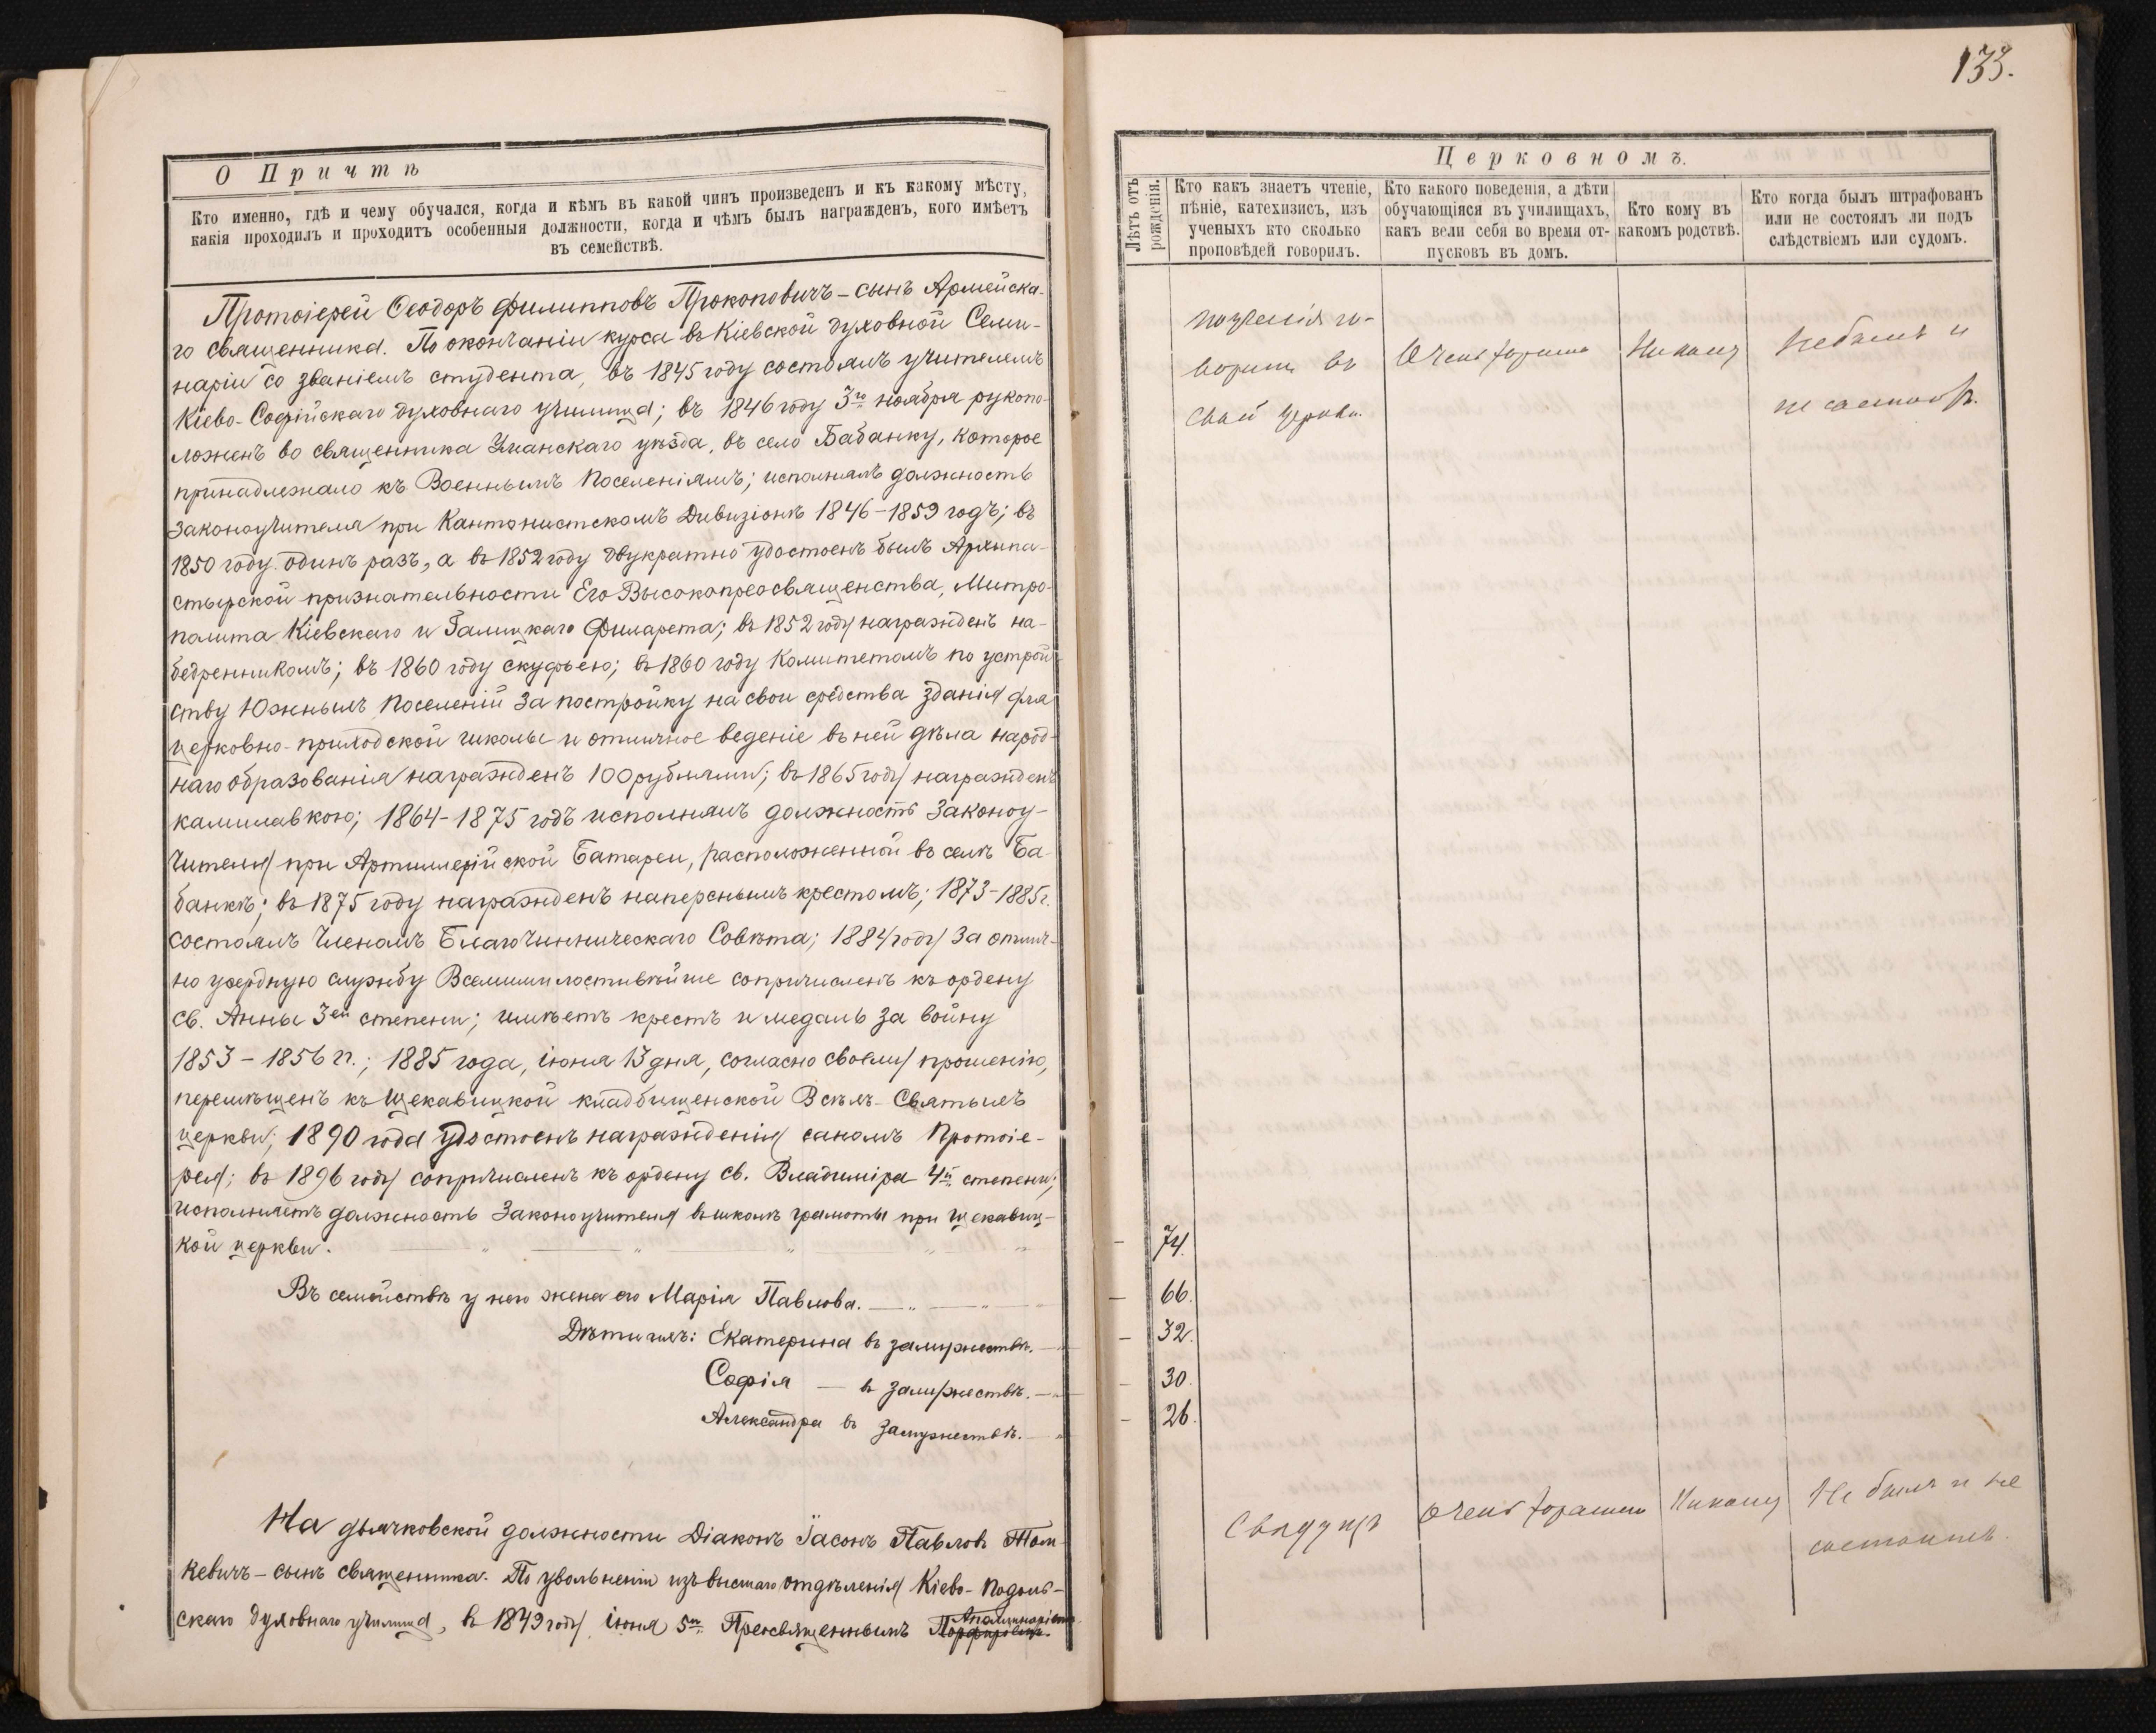 О Причтѣ
Кто именно, гдѣ и чему обучался, когда и кѣмъ въ какой чинъ произведенъ и къ какому мѣсту,
какія проходилъ и проходитъ особенныя должности, когда и чѣмъ былъ награжденъ, кого имѣетъ
въ семействѣ.
Протоіерей Ѳеодоръ Филипповъ Прокоповичъ – сынъ Армейска-
го священника. По окончаніи курса въ Кіевской духовной Семи-
наріи со званіемъ студента, въ 1845 году состоялъ учителемъ
Кіево-Софійскаго духовнаго училища; въ 1846 году 3го ноября рукопо-
ложенъ во священника Уманскаго уѣзда, въ село Бабанку, которое
принадлежало къ Военнымъ Поселеніямъ; исполнялъ должность
законоучителя при Кантонистскомъ Дивизіонѣ 1846–1859 годъ; въ
1850 году одинъ разъ, а въ 1852 году двукратно удостоенъ былъ Архипа-
стырской признательности Его Высокопреосвященства, Митро-
полита Кіевскаго и Галицкаго Филарета; въ 1852 году награжденъ на-
бедренникомъ; въ 1860 году скуфьею; въ 1860 году Комитетомъ по устрой-
ству Южныхъ Поселеній за постройку на свои средства зданія для
церковно-приходской школы и отличное веденіе въ ней дѣла народ-
наго образованія награжденъ 100 рублями; въ 1865 году награжденъ
камилавкою; 1864–1875 годъ исполнялъ должность Законоу-
чителя при Артиллерійской Батареи, расположенной въ селѣ Ба-
банкѣ; въ 1875 году награжденъ наперснымъ крестомъ; 1873–1885 г.
состоялъ Членомъ Благочинническаго Совѣта; 1884 году за отлич-
но усердную службу Всемилостивѣйше сопричисленъ къ ордену
Св. Анны 3ей степени; имѣетъ крестъ и медаль за войну
1853–1856 гг.; 1885 года, іюня 13 дня, согласно своему прошенію,
перемѣщенъ къ Щекавицкой кладбищенской Всѣхъ-Святыхъ
церкви; 1890 года удостоенъ награжденія саномъ Протоіе-
рея; въ 1896 году сопричисленъ къ ордену Св. Владиміра 4й степени;
исполняетъ должность Законоучителя въ школѣ грамоты при Щекавиц-
кой церкви.
Въ семействѣ у него жена его Марія Павлова.
Дѣти ихъ: Екатерина въ замужествѣ.
Софія – въ замужествѣ.
Александра въ замужествѣ.
На дьячковской должности Діаконъ Іасонъ Павловъ Том-
кевичъ – сынъ священника. По увольненіи изъ высшаго отдѣленія Кіево-Подоль-
скаго духовнаго училища, въ 1849 году іюня 5го Преосвященнымъ Аполлинаріемъ
133.
Церковномъ.
Лѣтъ отъ рожденія.
Кто какъ знаетъ чтеніе,
пѣніе, катехизисъ, изъ
ученыхъ кто сколько
проповѣдей говорилъ.
Кто какого поведенія, а дѣти
обучающіяся въ училищахъ,
какъ вели себя во время от-
пусковъ въ домъ.
Кто кому въ
какомъ родствѣ.
Кто когда былъ штрафованъ
или не состоялъ ли подъ
слѣдствіемъ или судомъ.
поученія го-
воритъ въ
своей церкви.
Очень хорошаго
Никому
Не былъ и
не состоитъ.
74.
66.
32.
30.
26.
Свѣдущъ
Очень хорошаго
Никому
Не былъ и не
состоитъ.